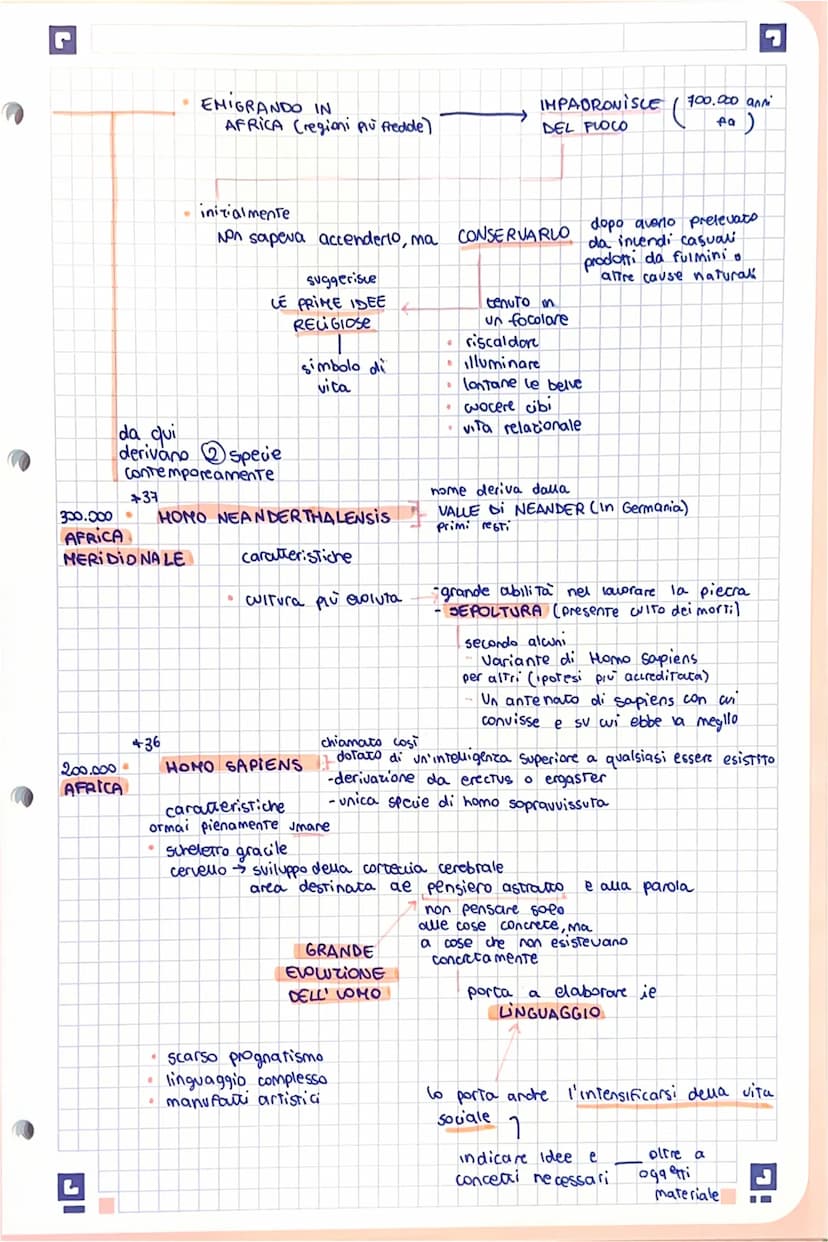 • EMIGRANDO IN
AFRICA (regioni più fredde)
IMPADRONISCE
DEL FUOCO
(700.000 anni
fa)
• inizialmente
non sapeva accenderlo, ma CONSERVARLO
dopo averlo prelevato
da incendi casuali
prodotti da fulmini o
altre cause naturali
suggerisce
LE PRIME IDEE
RELIGIOSE
simbolo di
vita
tenuto in
un focolare
• riscaldare
• illuminare
• lontane le belve
• cuocere cibi
• vita relazionale
da qui
derivano 2 specie
contemporeamente
*37
300.000 • HOMO NEANDERTHALENSIS
AFRICA
MERIDIONALE
nome deriva dalla
VALLE DI NEANDER (in Germania)
primi resti
caratteristiche
• cultura più evoluta
- grande abilità nel lavorare la pietra
- SEPOLTURA (presente culto dei morti)
secondo alcuni
- variante di Homo Sapiens
per altri (ipotesi più accreditata)
- Un antenato di sapiens con cui
convisse e su cui ebbe la meglio
*36
200.000 • HOMO SAPIENS
AFRICA
chiamato così
dotato di un'intelligenza superiore a qualsiasi essere esistito
- derivazione da erectus o ergaster
- unica specie di homo sopravvissuta
caratteristiche
ormai pienamente umane
• scheletro gracile
cervello → sviluppo della corteccia cerebrale
area destinata al pensiero astratto e alla parola
non pensare solo
alle cose concrete, ma
a cose che non esistevano
concretamente
GRANDE
EVOLUZIONE
DELL'UOMO
porta a elaborare il
LINGUAGGIO
• scarso prognatismo
• linguaggio complesso
• manufatti artistici
lo porta anche l'intensificarsi della vita
sociale
indicare idee e
concetti necessari
oltre a
oggetti
materiale